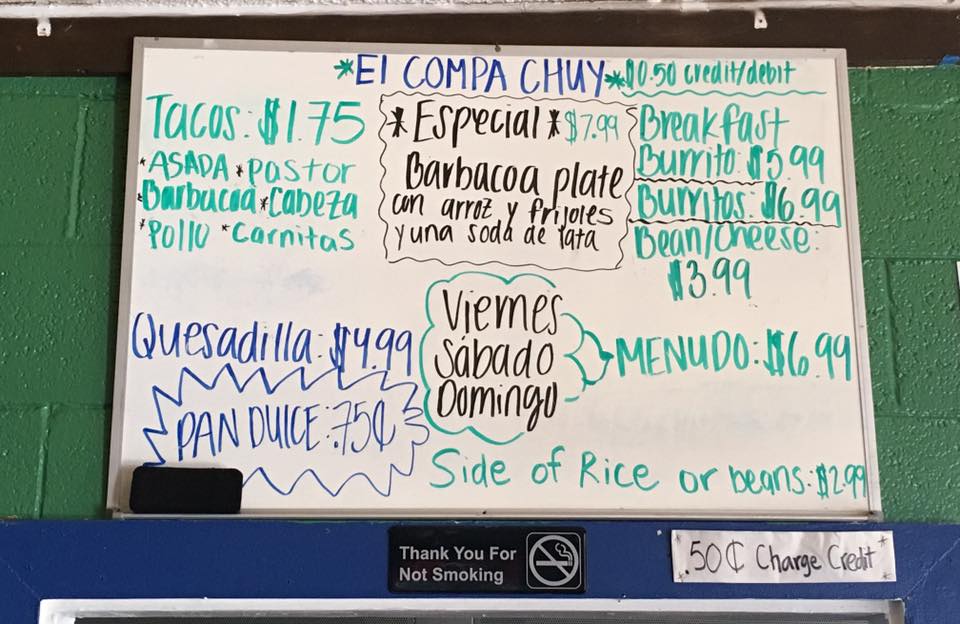 *El COMPA CHUY* $0.50 credit/debit
Tacos: $1.75
*ASADA *Pastor
*Barbacoa *Cabeza
*Pollo *Carnitas
*Especial* $7.99
Barbacoa plate
con arroz y frijoles
y una soda de lata
Breakfast
Burrito: $5.99
Burritos: $6.99
Bean/Cheese:
$3.99
Quesadilla: $4.99
Viernes
Sábado
Domingo
MENUDO: $6.99
PAN DULCE: .75¢
Side of Rice or beans: $2.99
Thank You For
Not Smoking
.50¢ Charge Credit